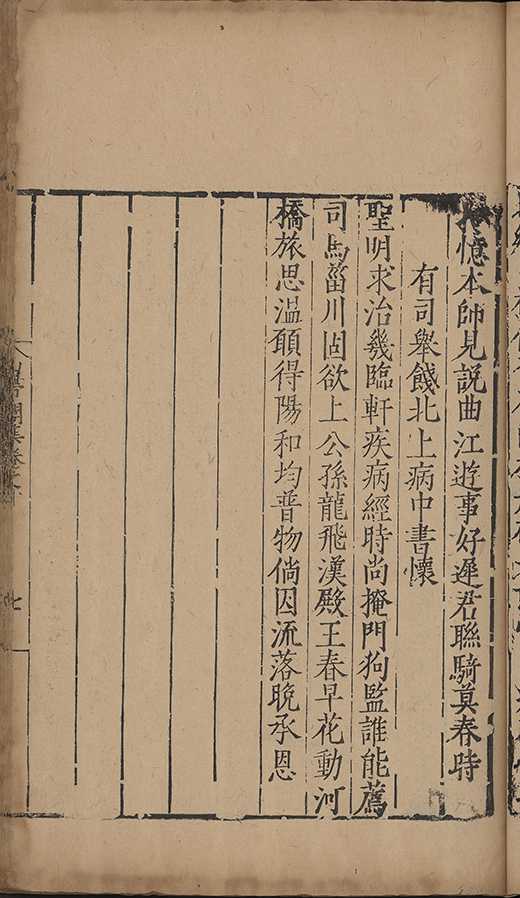 憶本師見說曲江遊事好遲君聯騎莫春時
有司舉餞北上病中書懷
聖明求治幾臨軒疾病經時尚掩門狗監誰能薦
司馬菑川固欲上公孫龍飛漢殿王春早花動河
橋旅思溫願得陽和均普物倘因流落晚承恩